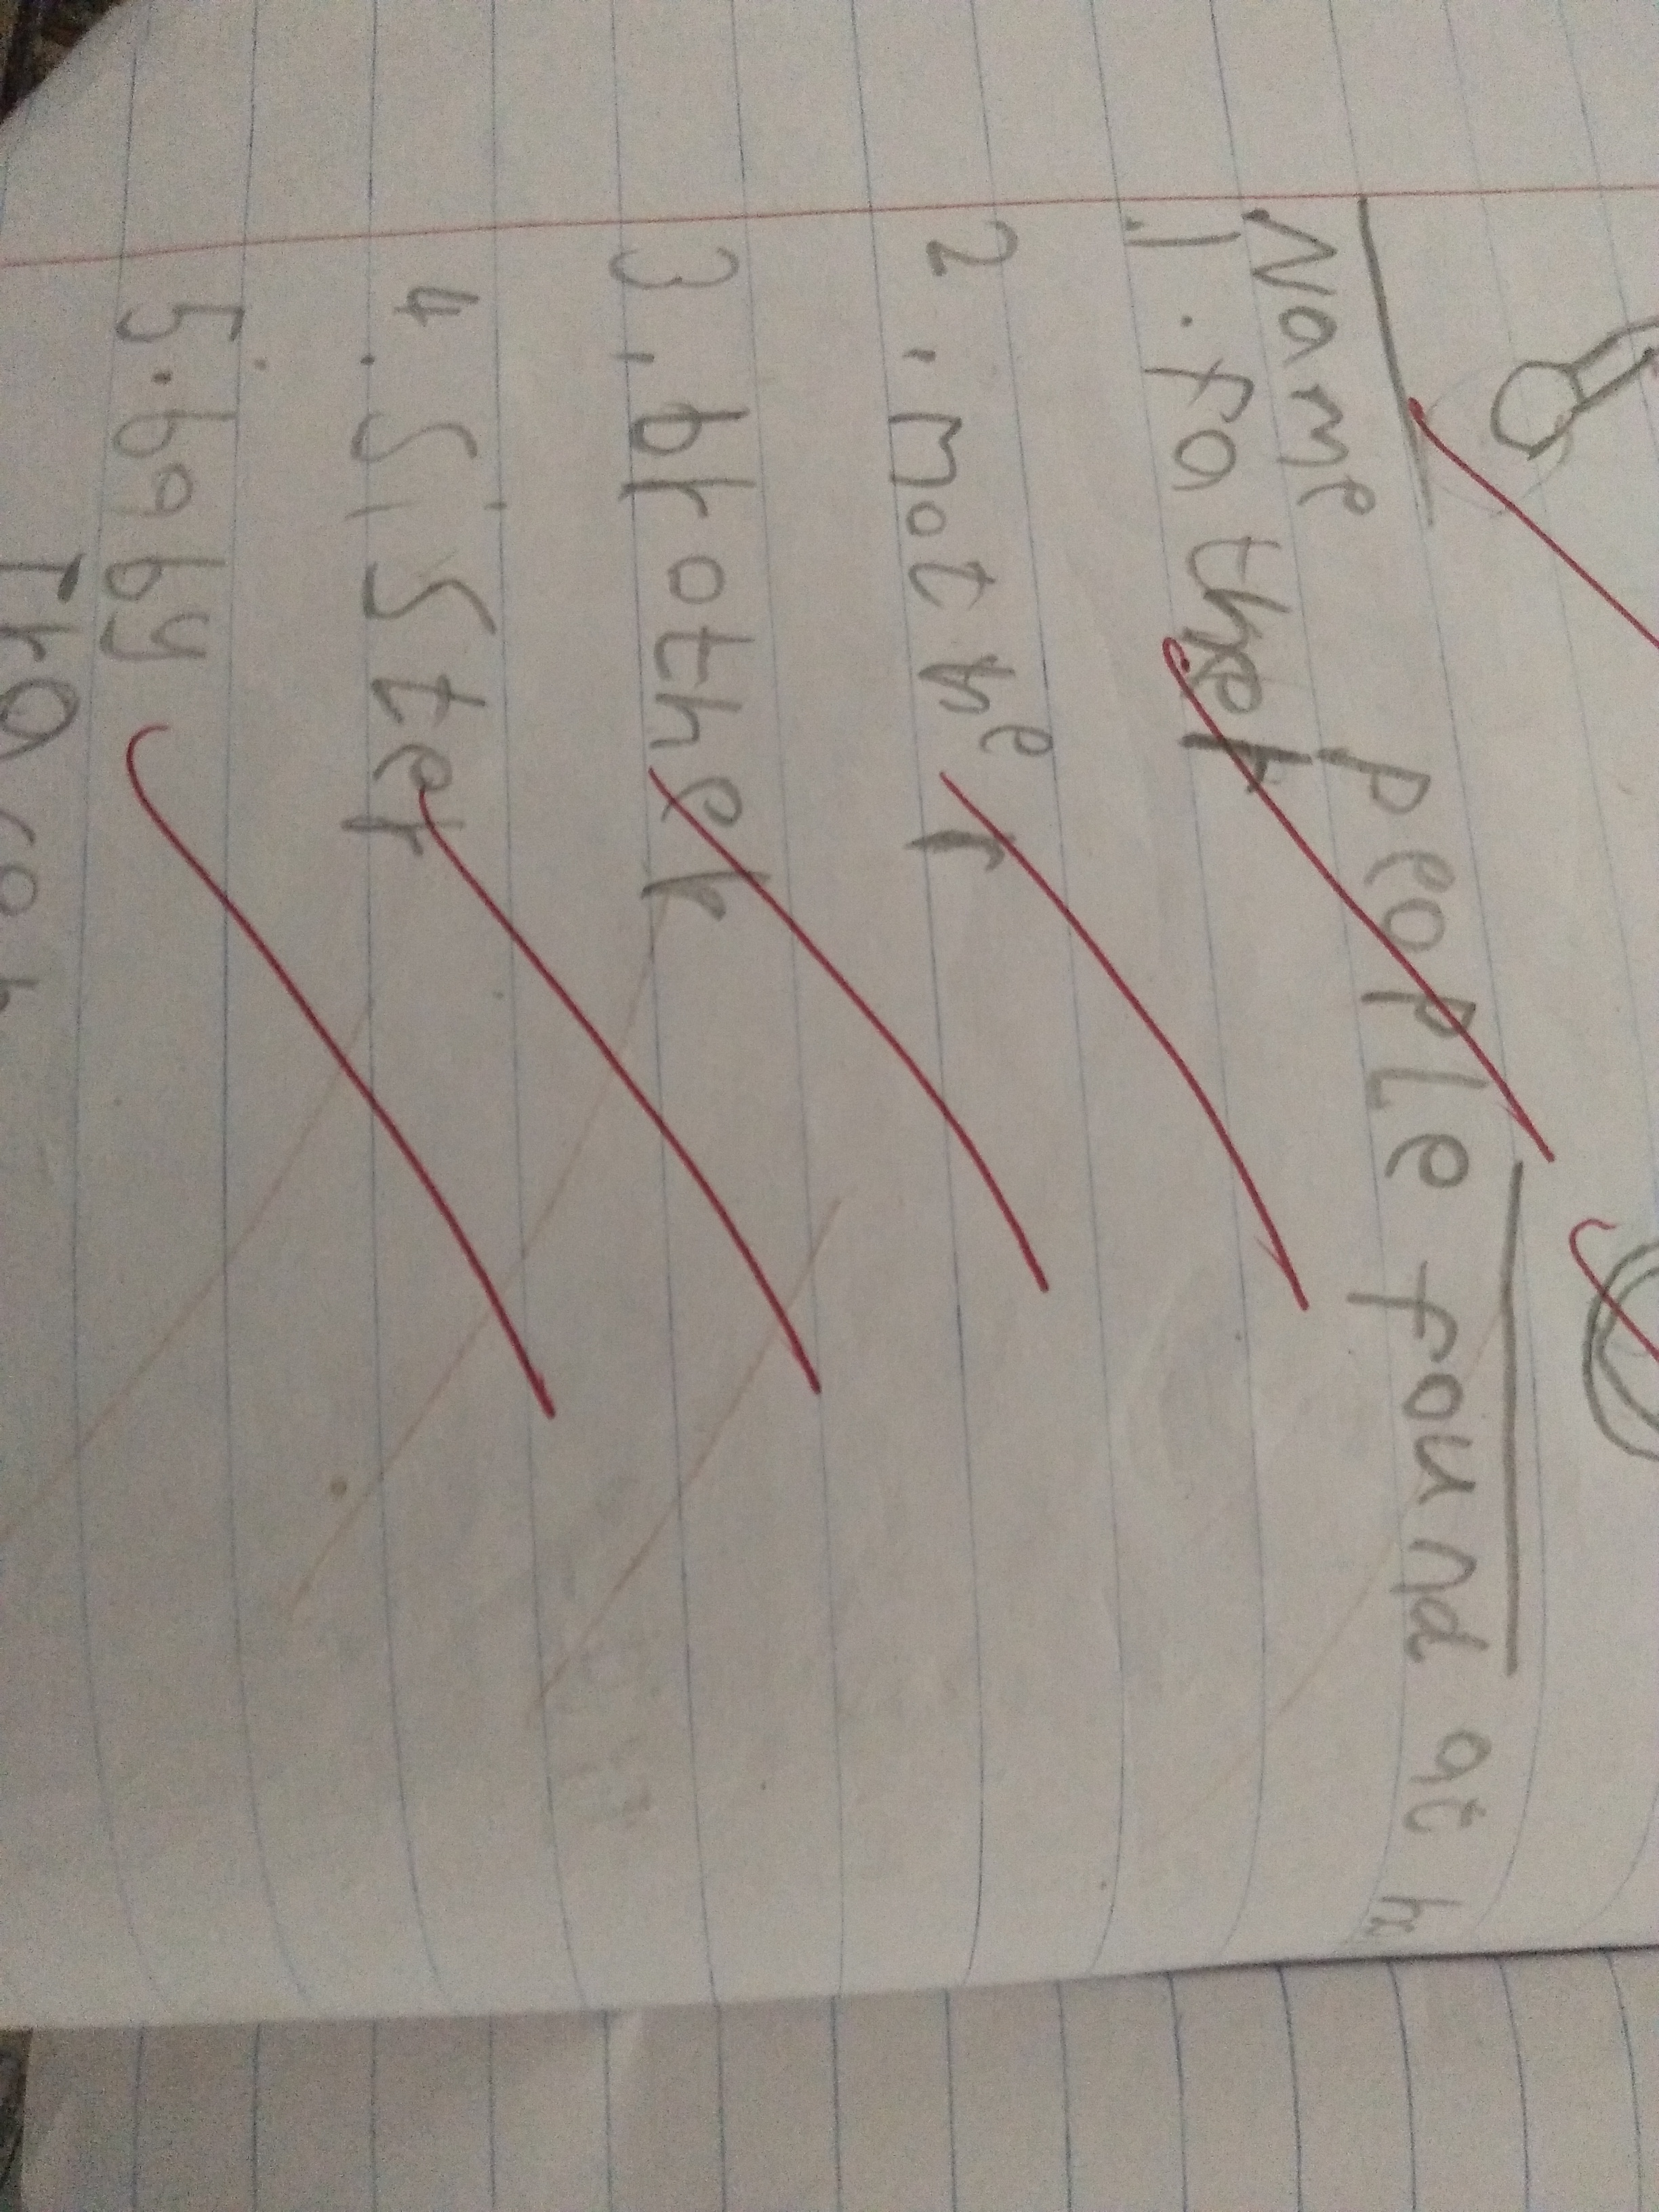 Name people found at
1. father
2. mother
3. brother
4. sister
5. baby